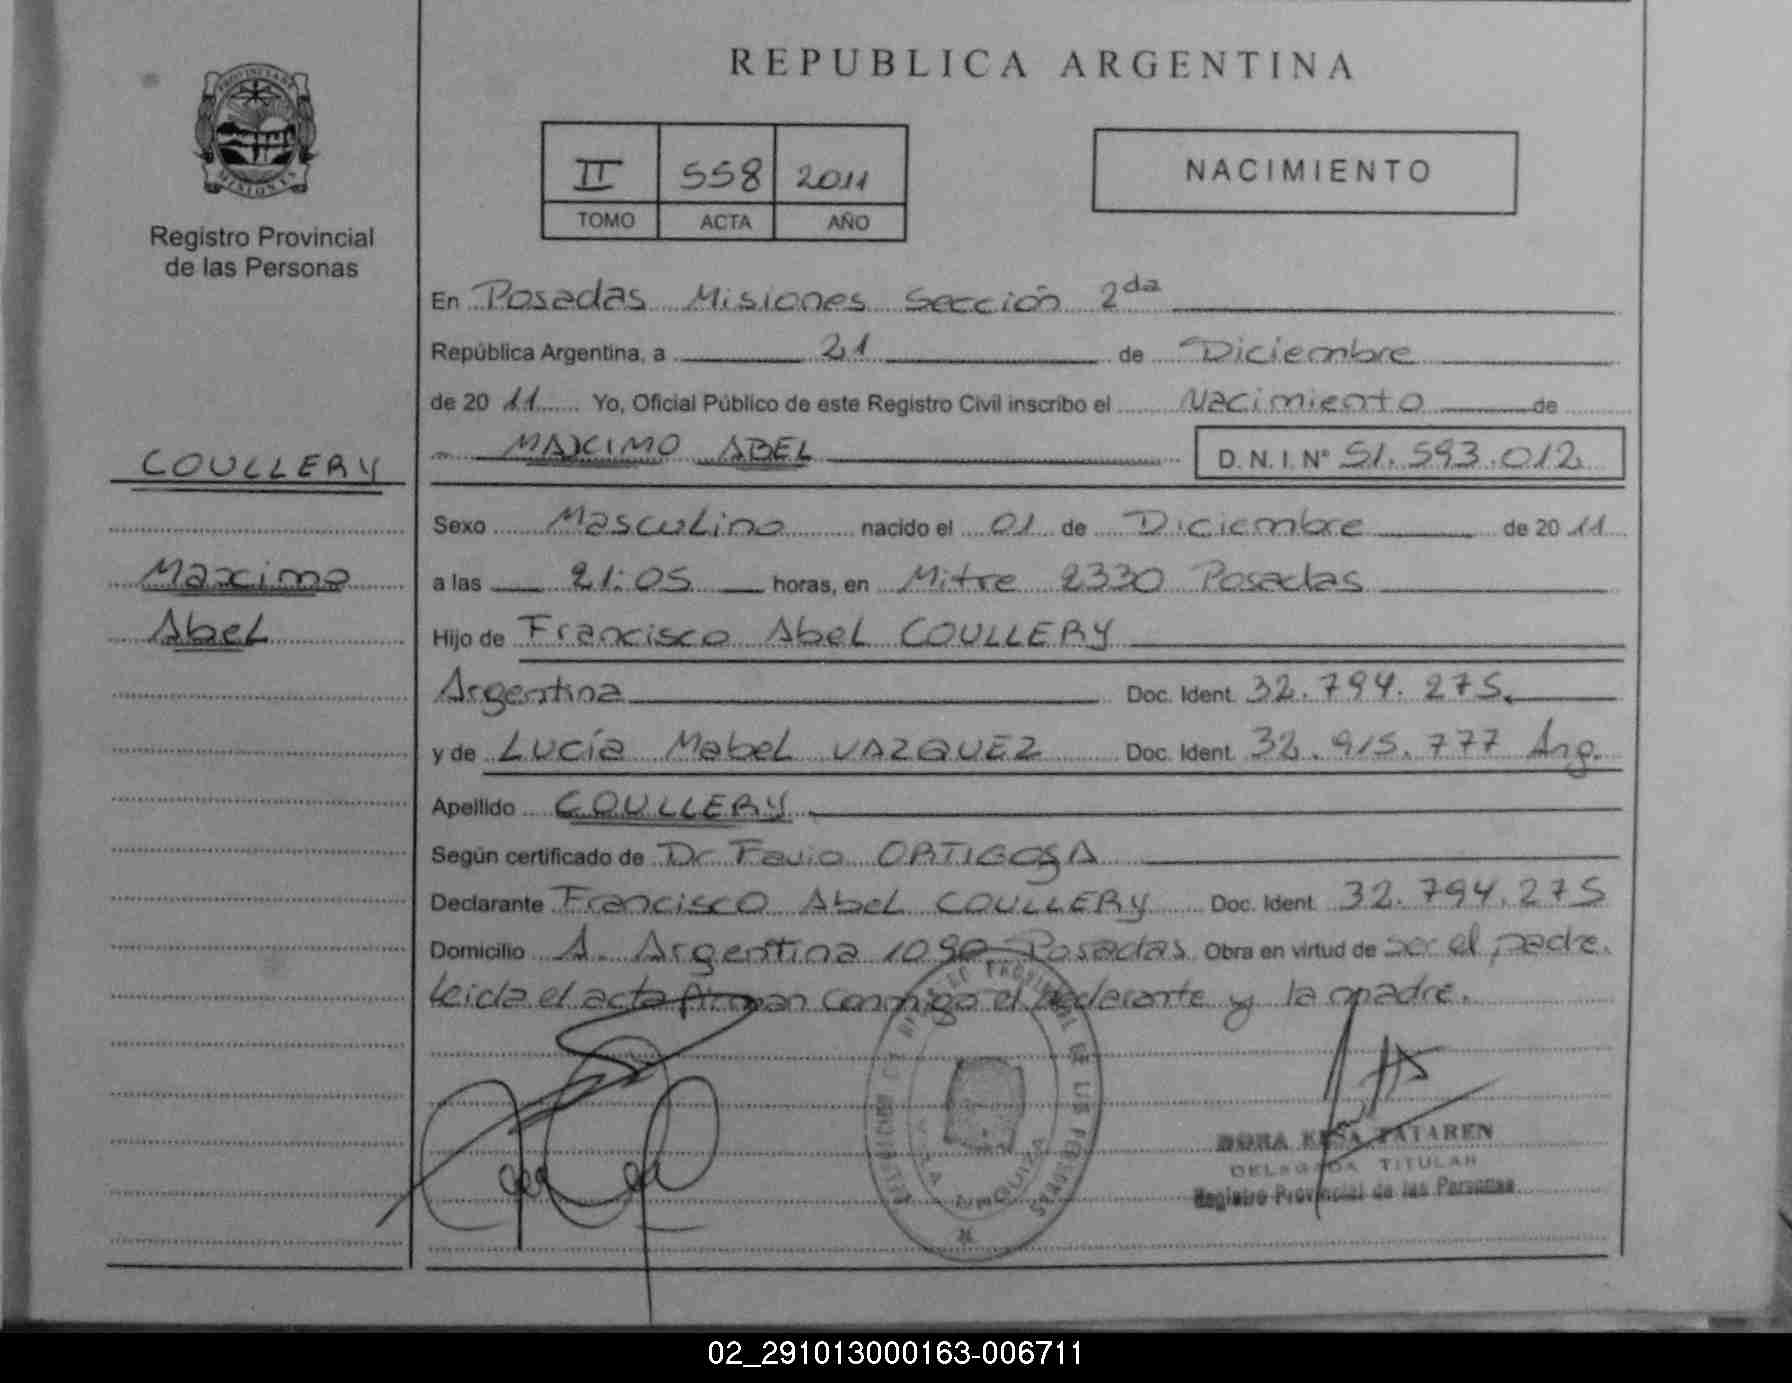 REPUBLICA ARGENTINA
PROVINCIA DE
MISIONES
Registro Provincial
de las Personas
II 558 2011
TOMO ACTA AÑO
NACIMIENTO
En Posadas Misiones Sección 2da
República Argentina, a 21 de Diciembre
de 2011 Yo, Oficial Público de este Registro Civil inscribo el Nacimiento de
MAXIMO ABEL D. N. I. Nº 51.593.012
COULLERY
Maximo
Abel
Sexo Masculino nacido el 01 de Diciembre de 2011
a las 21:05 horas, en Mitre 2330 Posadas
Hijo de Francisco Abel COULLERY
Argentina Doc. Ident. 32.794.275
y de Lucía Mabel VAZQUEZ Doc. Ident. 32.915.777 Arg.
Apellido COULLERY
Según certificado de Dr Favio ORTIGOSA
Declarante Francisco Abel COULLERY Doc. Ident. 32.794.275
Domicilio A. Argentina 1090 Posadas Obra en virtud de ser el padre.
leida el acta firman conmigo el declarante y la madre.
PROVINCIAL DE LAS PERSONAS
URQUIZA
DORA TATAREN
DELEGADA TITULAR
Registro Provincial de las Personas
02_291013000163-006711